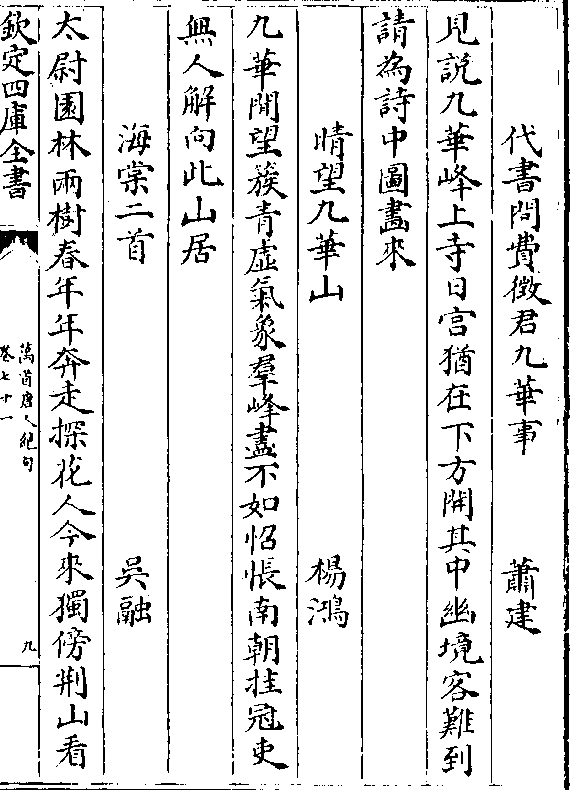 代書問費徵君九華事　蕭建
見說九華峰上寺日宮猶在下方開其中幽境客難到
請為詩中圖畫來
晴望九華山　楊鴻
九華閒望簇青虛氣象羣峰盡不如怊悵南朝挂冠吏
無人解向此山居
海棠二首　吳融
太尉園林兩樹春年年奔走探花人今來獨傍荆山看
欽定四庫全書
萬首唐人絕句
卷七十一
九